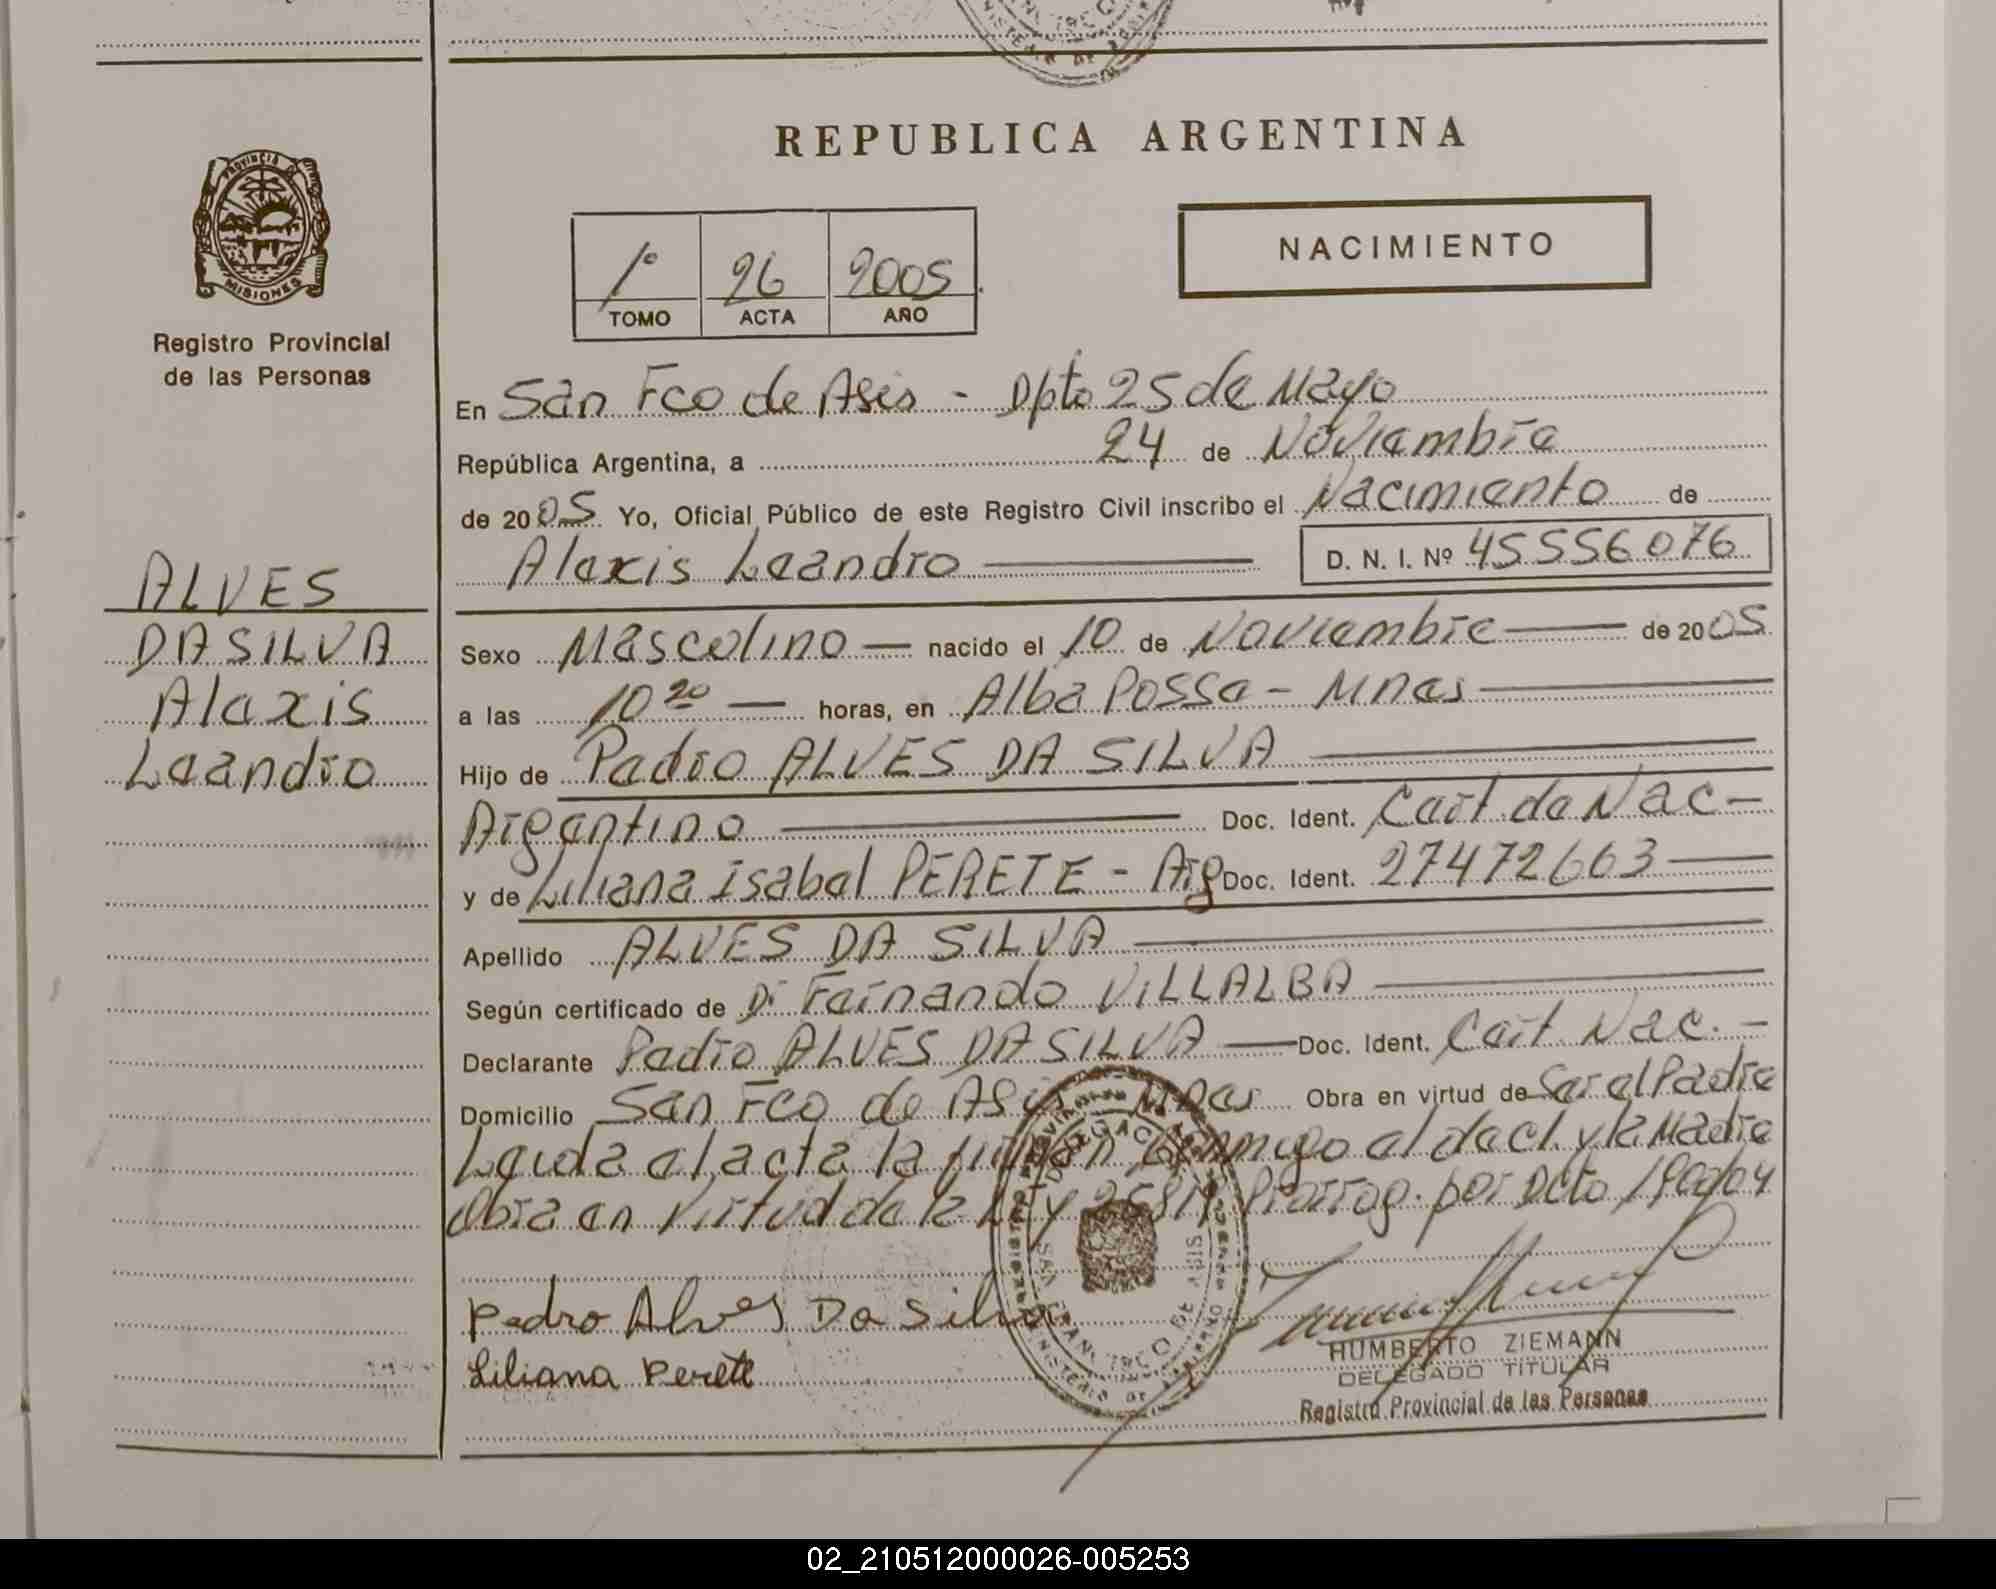 REPUBLICA ARGENTINA
PROVINCIA DE
MISIONES
Registro Provincial
de las Personas
1º 26 2005
TOMO ACTA AÑO
NACIMIENTO
ALVES
DA SILVA
Alexis
Leandro
En San Fco de Asis - Dpto 25 de Mayo
República Argentina, a 24 de Noviembre
de 2005 Yo, Oficial Público de este Registro Civil inscribo el Nacimiento de
Alexis Leandro D. N. I. Nº 45556076
Sexo Mascolino nacido el 10 de Noviembre de 2005
a las 10 20 horas, en Alba Posse - Mnes
Hijo de Pedro ALVES DA SILVA
Argentino Doc. Ident. Cert. de Nac -
y de Liliana Isabel PERETE - Arg Doc. Ident. 27472663
Apellido ALVES DA SILVA
Según certificado de Dr Fernando VILLALBA
Declarante Pedro ALVES DA SILVA Doc. Ident. Cert. Nac. -
Domicilio San Fco de Asis Mnes Obra en virtud de Ser el Padre
Leida el acta la firman conmigo el decl. y la Madre
Obra en virtud de la Ley 25819 Prorrog. por Dcto
Pedro Alves Da Silva
Liliana Perete
SAN FRANCISCO DE ASIS
HUMBERTO ZIEMANN
DELEGADO TITULAR
Registro Provincial de las Personas
02_210512000026-005253